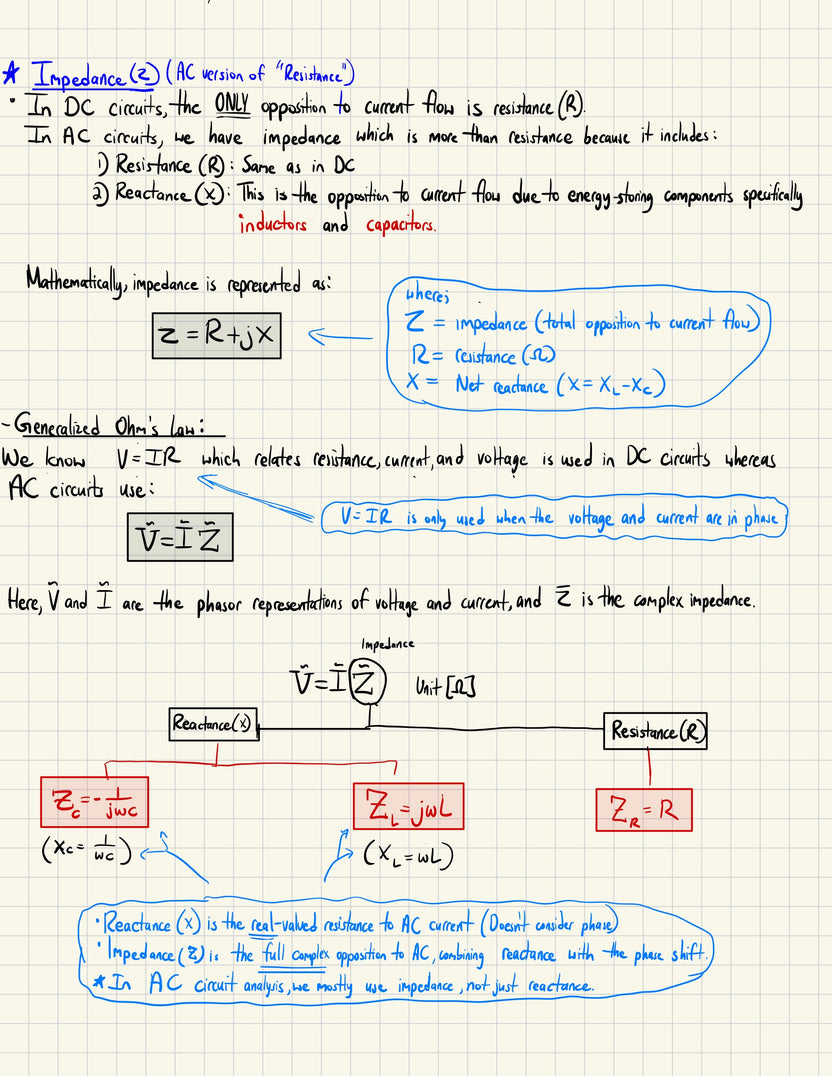 * Impedance (Z) (AC version of "Resistance")
• In DC circuits, the ONLY opposition to current flow is resistance (R).
In AC circuits, we have impedance which is more than resistance because it includes:
1) Resistance (R): Same as in DC
2) Reactance (X): This is the opposition to current flow due to energy-storing components specifically
inductors and capacitors.
Mathematically, impedance is represented as:
Z = R + jX
where;
Z = impedance (total opposition to current flow)
R = resistance (Ω)
X = Net reactance (X = X_L - X_C)
- Generalized Ohm's Law:
We know V = IR which relates resistance, current, and voltage is used in DC circuits whereas
AC circuits use:
V = IR is only used when the voltage and current are in phase
Ṽ = Ĩ Z̃
Here, Ṽ and Ĩ are the phasor representations of voltage and current, and Z̄ is the complex impedance.
Impedance
Ṽ = Ĩ Z̃ Unit [Ω]
Reactance (X)
Resistance (R)
Z_C = -1/jωC
Z_L = jωL
Z_R = R
(X_C = 1/ωC)
(X_L = ωL)
• Reactance (X) is the real-valued resistance to AC current (Doesn't consider phase)
• Impedance (Z) is the full complex opposition to AC, combining reactance with the phase shift.
* In AC circuit analysis, we mostly use impedance, not just reactance.